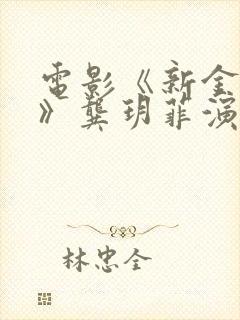 電影《新金
》龔玥菲演
林忠全